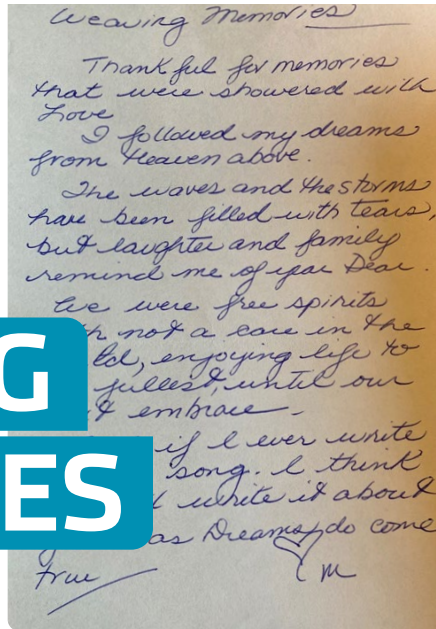 Weaving Memories
Thankful for memories
that were showered with
Love
I followed my dreams
from Heaven above.
The waves and the storms
have been filled with tears,
but laughter and family
remind me of you Dear.
We were free spirits
not a care in the
enjoying life to
fullest, until our
embrace.
if I ever write
song. I think
write it about
as Dreams do come
true
m
G
ES